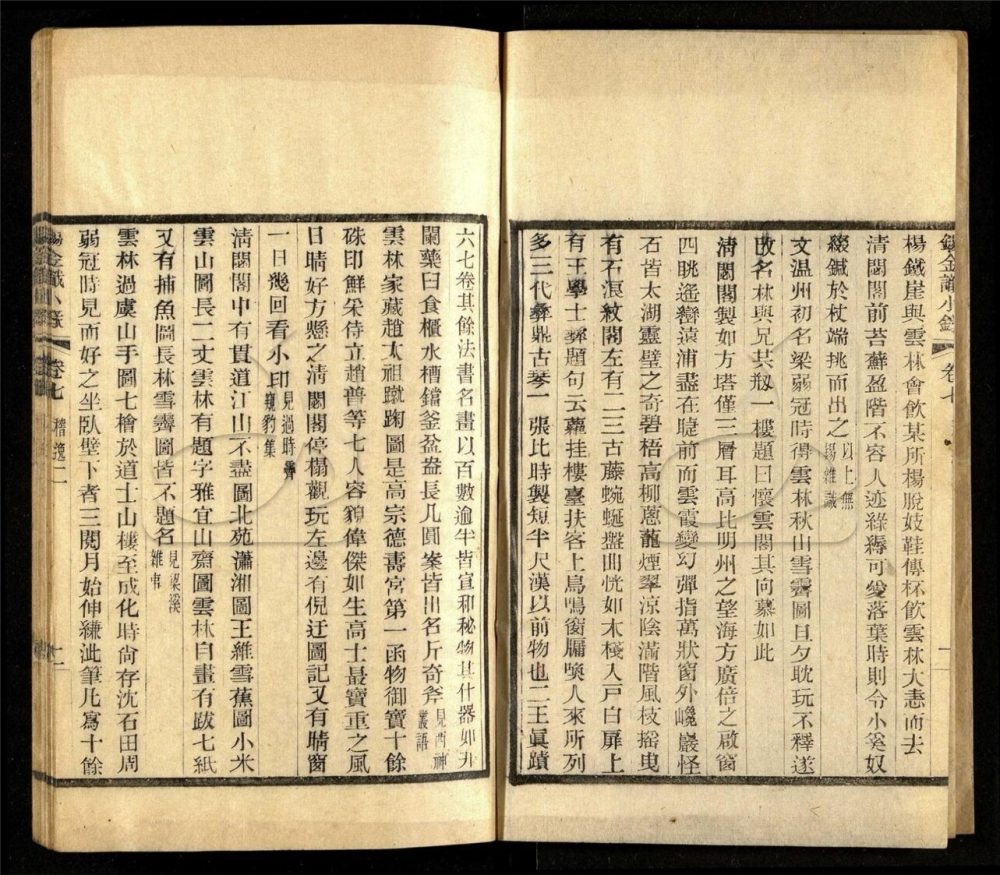 錫金識小錄 卷七
楊鐵崖與雲林會飲某所楊脫妓鞋傳杯飲雲林大恚而去
清閟閣前苔蘚盈階不容人迹綠縟可愛落葉時則令小奚奴
綴鍼於杖端挑而出之以上無錫雜識
文温州初名梁弱冠時得雲林秋山雪霽圖旦夕耽玩不釋遂
改名林與兄共構一樓題曰懷雲閣其向慕如此
清閟閣製如方塔僅三層耳高比明州之望海方廣倍之啟窗
四眺遙巒遠浦盡在睫前而雲霞變幻彈指萬狀窗外巉巖怪
石皆太湖靈璧之奇碧梧高柳蔥蘢煙翠涼陰滿階風枝搖曳
有石浪紋閣左有二三古藤蜿蜒盤曲恍如木棧入戸白扉上
有王學士彝題句云蘿挂樓臺扶客上鳥鳴窗牖喚人來所列
多三代彝鼎古琴一張比時製短半尺漢以前物也二王眞蹟
六七卷其餘法書名畫以百數逾半皆宣和秘物其什器如
闌藥曰食櫃水槽鐺釜盆盎長几圓案皆出名斤奇斧見西神叢語
雲林家藏趙太祖蹴踘圖是高宗德壽宮第一函物御寶十餘
硃印鮮采侍立趙普等七人容貌偉傑如生高士最寶重之風
日晴好方懸之清閟閣停榻觀玩左邊有倪迂圖記又有晴窗
一日幾回看小印見過時霽窺豹集
清閟閣中有貫道江山不盡圖北苑瀟湘圖王維雪蕉圖小米
雲山圖長二丈雲林有題字雅宜山齋圖雲林自畫有跋七紙
又有捕魚圖長林雪霽圖皆不題名見梁溪雜事
雲林過虞山手圖七檜於道士山樓至成化時尙存沈石田周
弱冠時見而好之坐臥壁下者三閱月始伸縑泚筆凡寫十餘
錫金識小錄 卷七 稽逸二